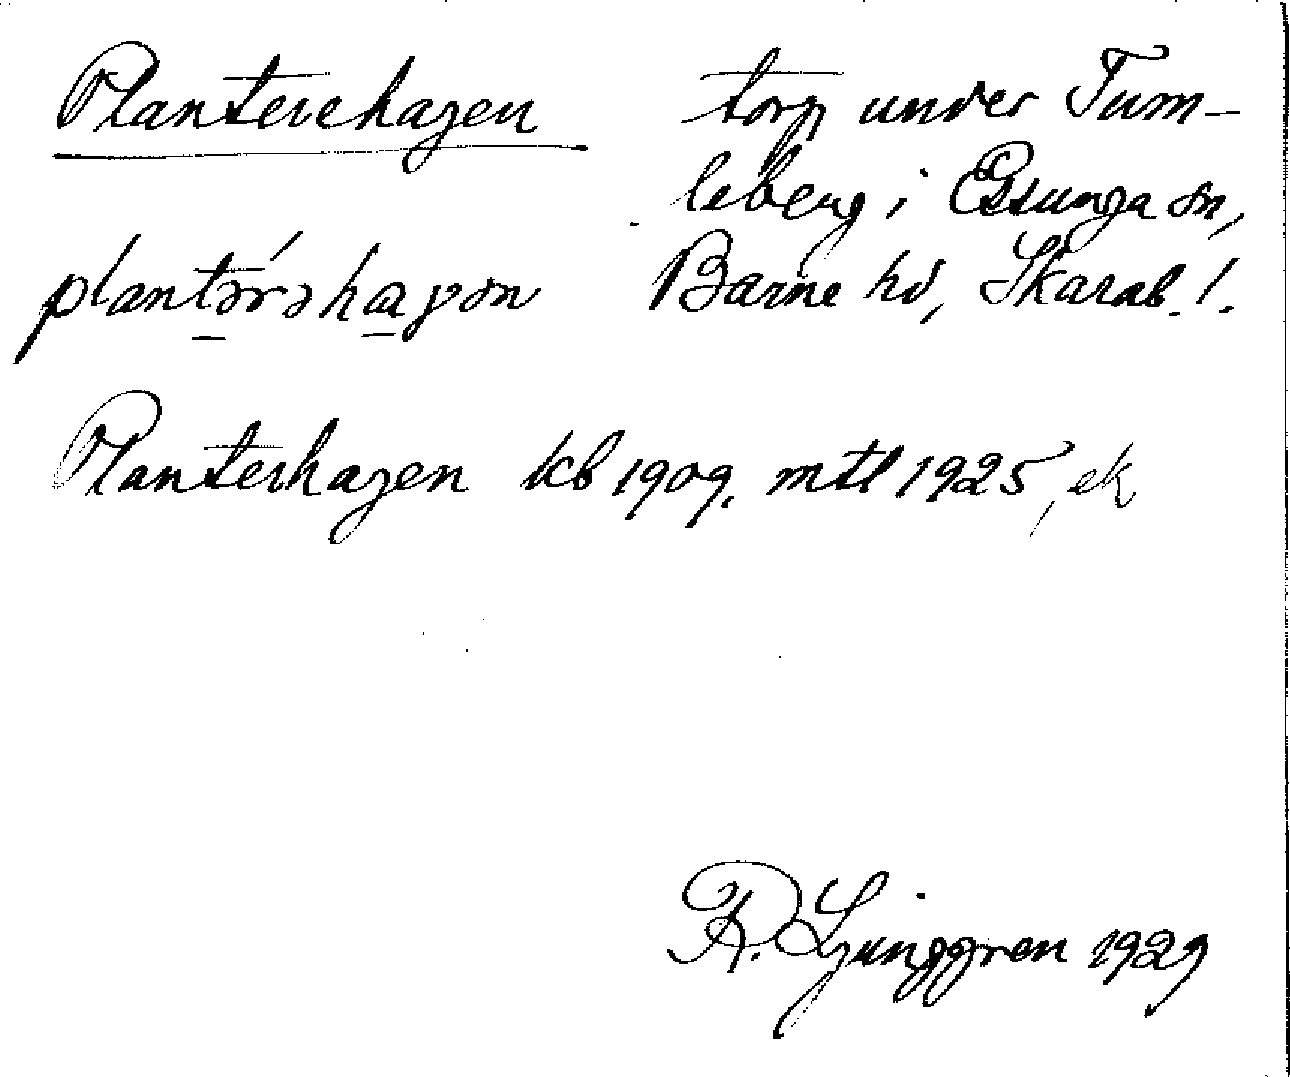 Planterehagen torp under Tum-
leberg i Essunga sn,
plantərəhaɡən Barne hd, Skarab. l.
Planterhagen kb 1909, mtl 1925, ek
R. Ljunggren 1929